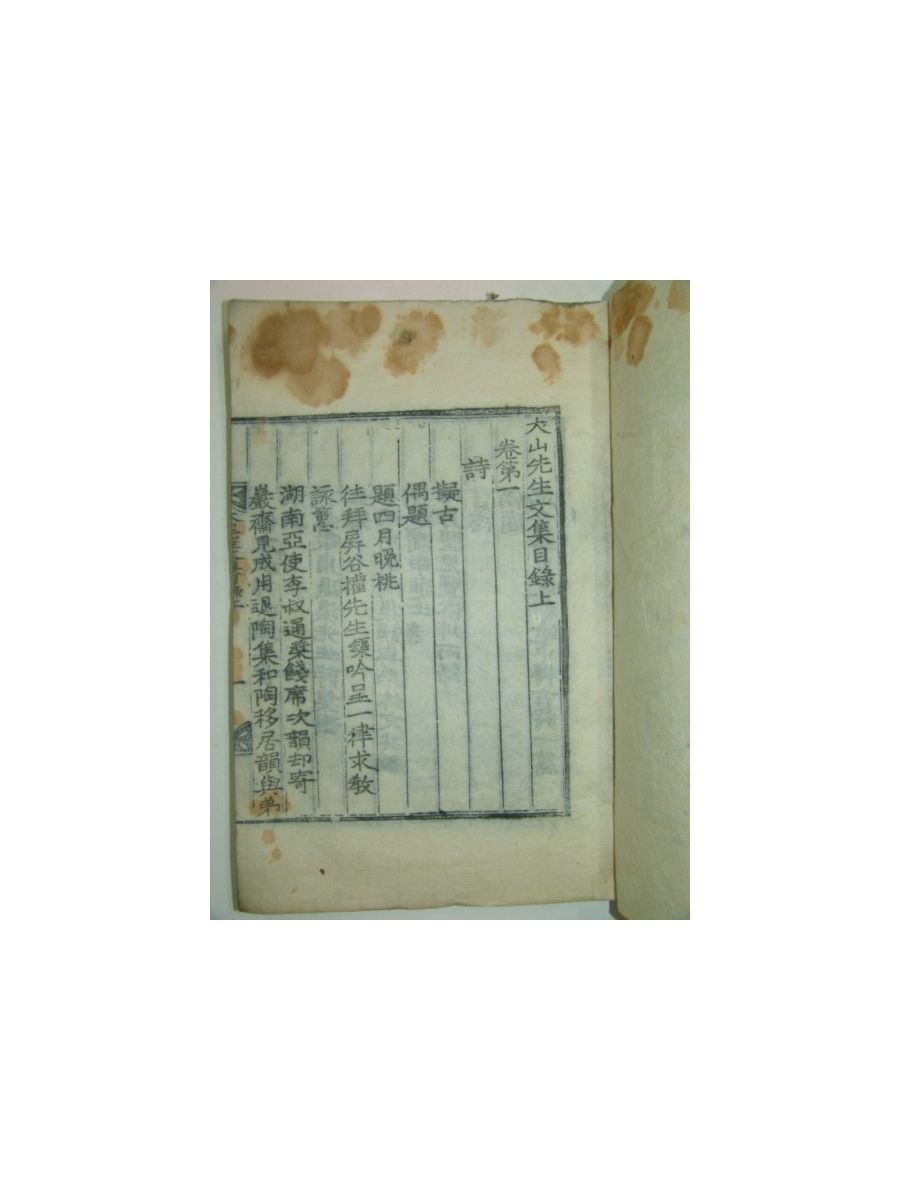 大山先生文集目錄上
卷第一
詩
擬古
偶題
題四月晚桃
往拜屛谷權先生榘吟呈一律求敎
詠蕙
湖南亞使李叔通槩餞席次韻却寄
巖齋見成用退陶集和陶移居韻與弟